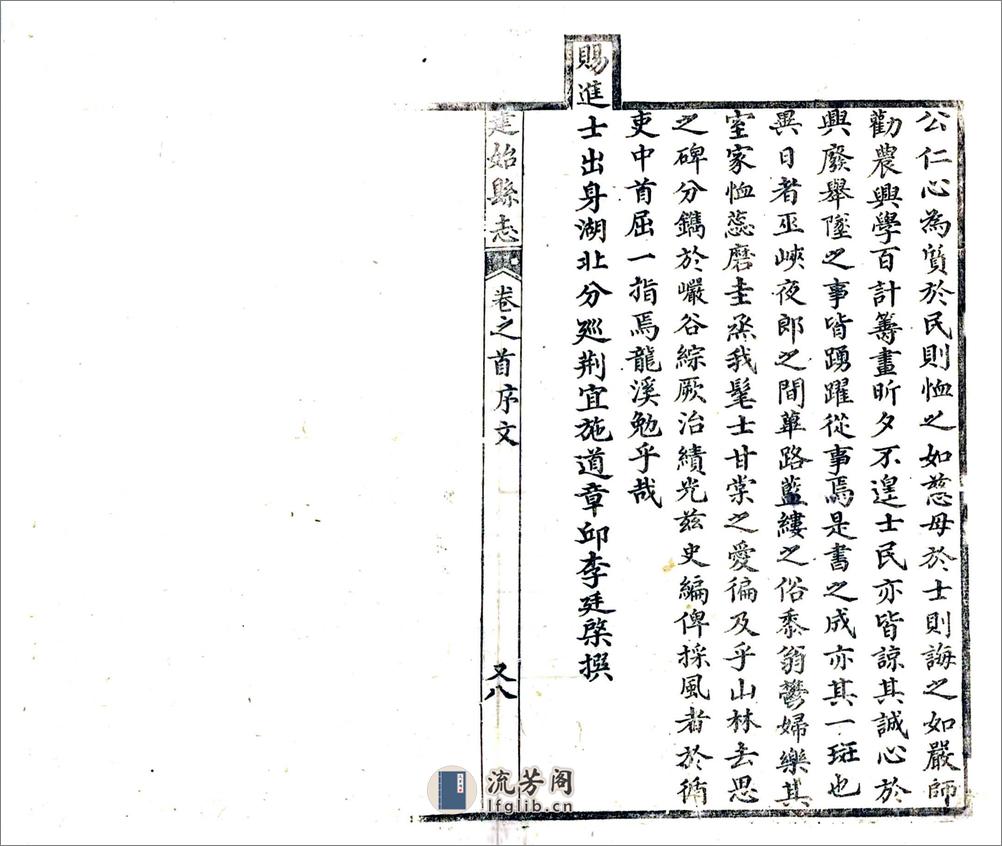 公仁心為質於民則恤之如慈母於士則誨之如嚴師
勸農興學百計籌畫昕夕不遑士民亦皆諒其誠心於
興廢舉墜之事皆踴躍從事焉是書之成亦其一斑也
異日者巫峽夜郎之間蓽路藍縷之俗黍翁鬱婦樂其
室家恤蕊磨圭烝我髦士甘棠之愛徧及乎山林去思
之碑分鐫於巖谷綜厥治績光茲史編俾採風者於循
吏中首屈一指焉龍溪勉乎哉
賜進士出身湖北分巡荆宜施道章邱李廷棨撰
建始縣志
卷之首序文
又八
流芳阁
lfglib.cn